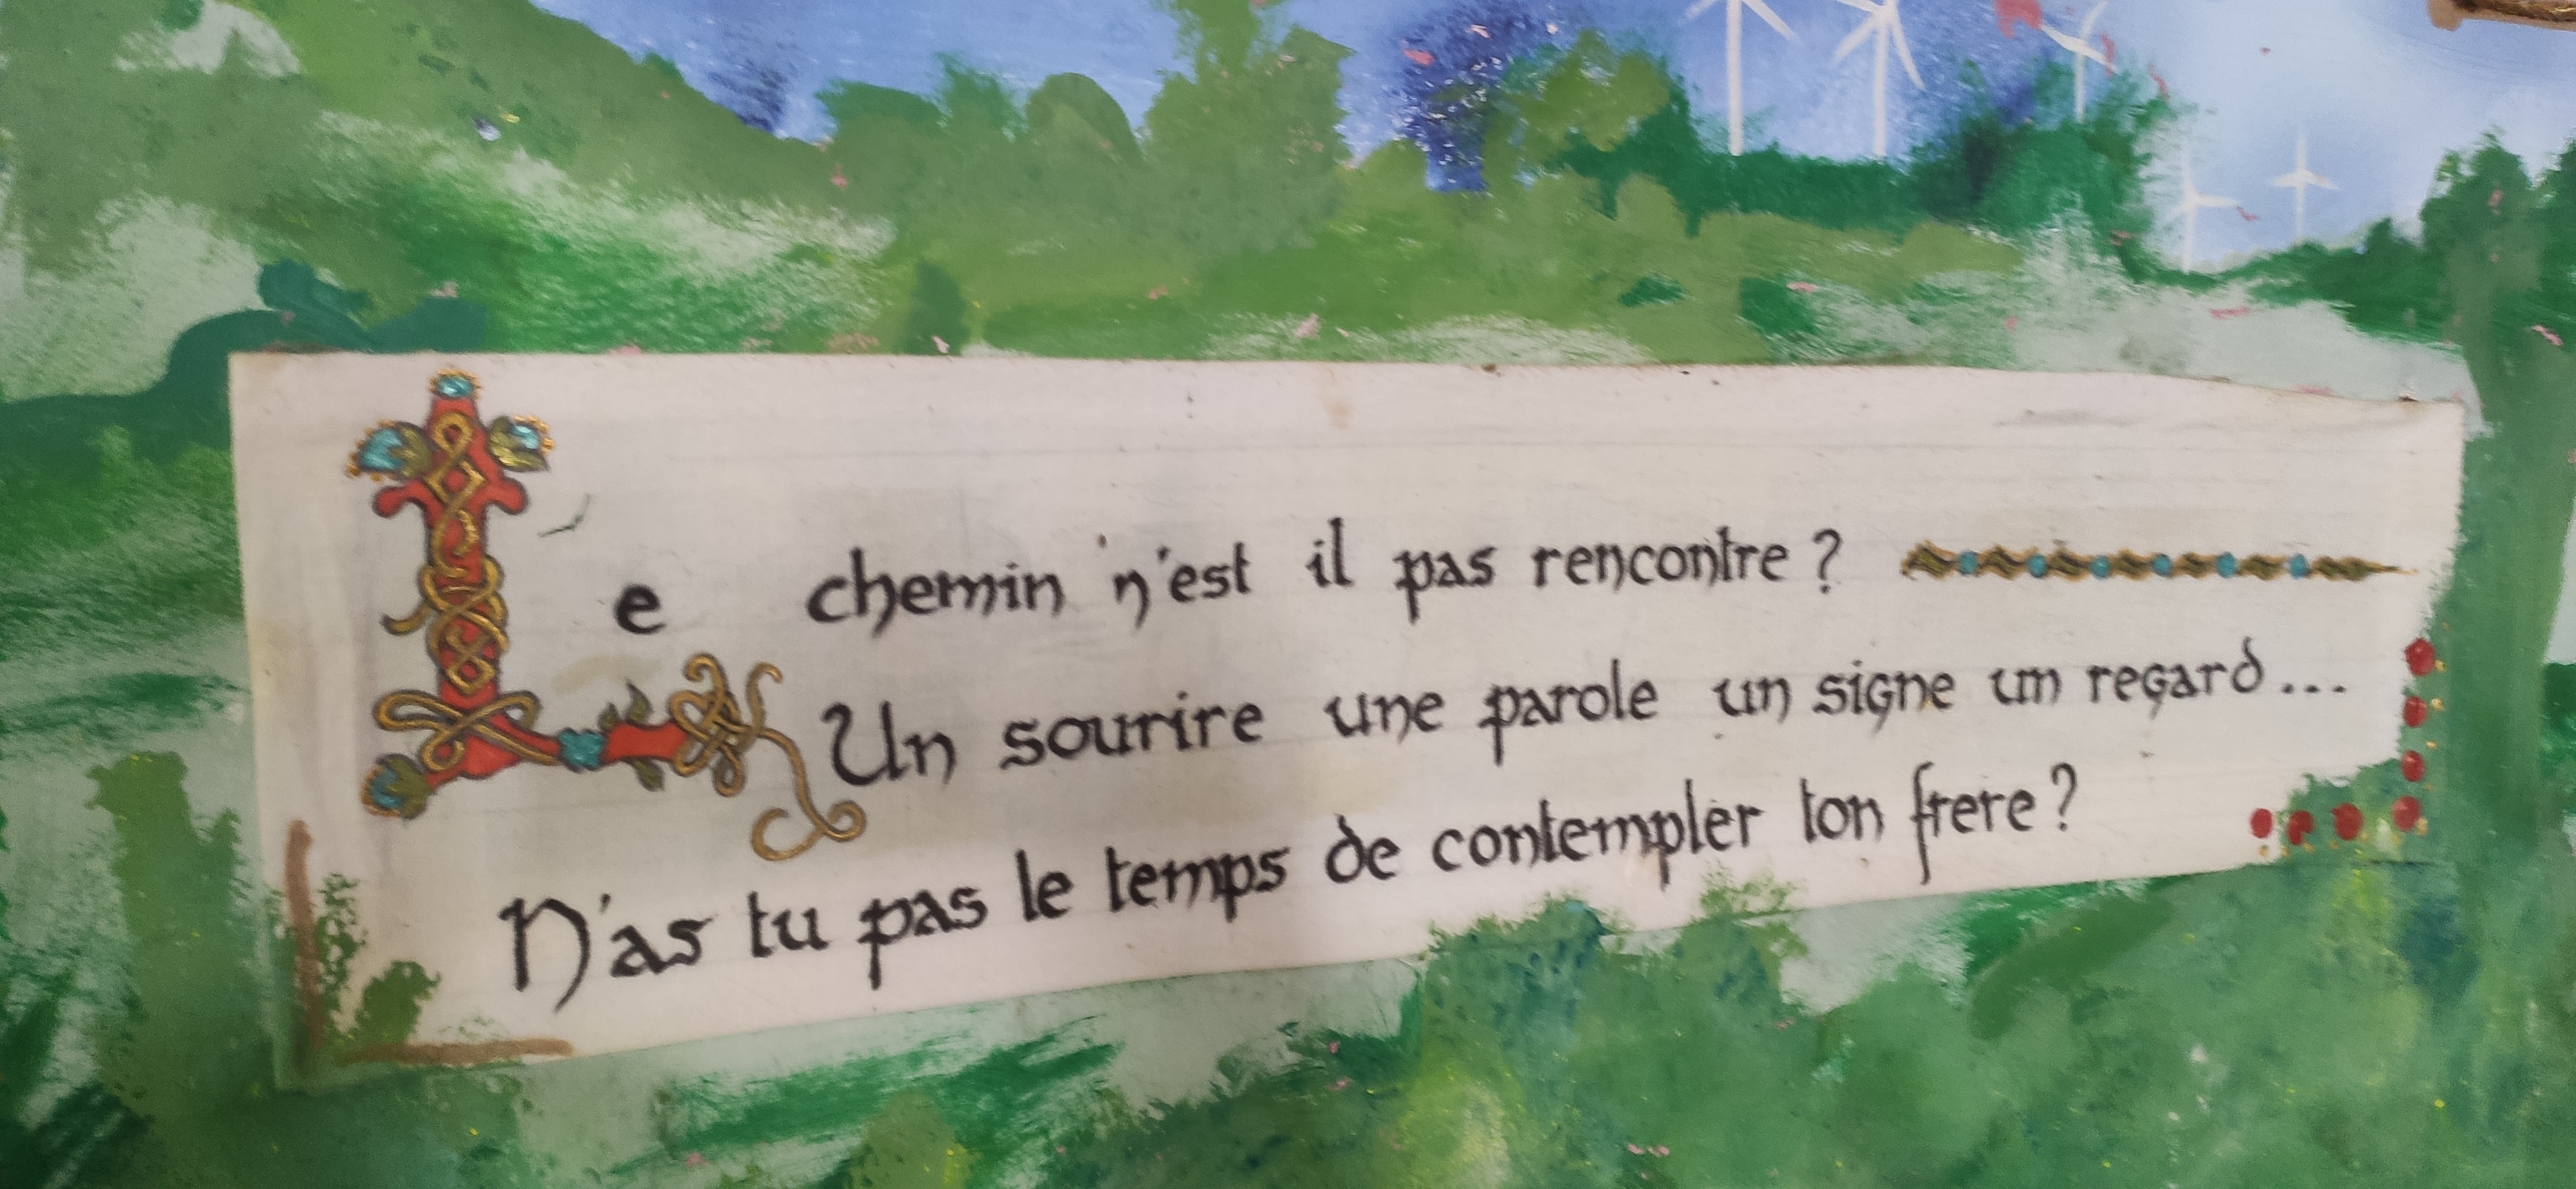 Le chemin n'est il pas rencontre ?
Un sourire une parole un signe un regard...
N'as tu pas le temps de contempler ton frere ?